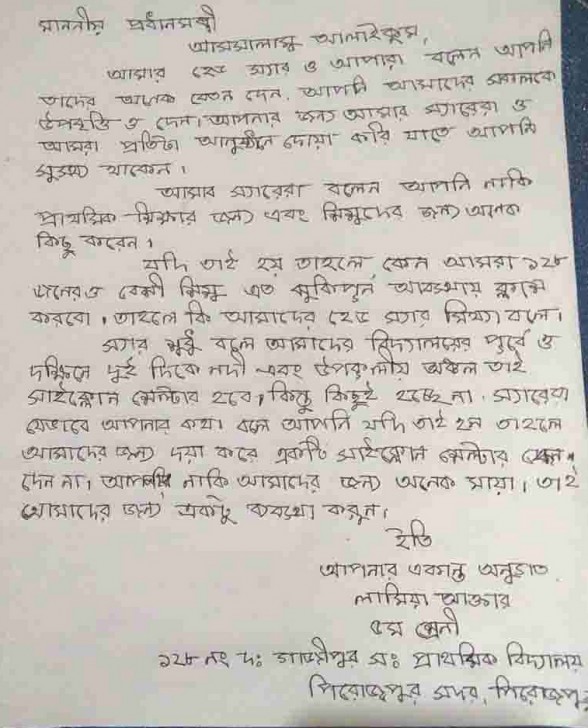 মাননীয় প্রধানমন্ত্রী
আসসালামু আলাইকুম,
আমার হেড স্যার ও আপারা বলেন আপনি
তাদের অনেক বেতন দেন, আপনি আমাদের সকলকে
উপবৃত্তি ও দেন। আপনার জন্য আমার স্যারেরা ও
আমরা প্রতিটা আনুষ্ঠানে দোয়া করি যাতে আপনি
সুস্থ্য থাকেন।
আমার স্যারেরা বলেন আপনি নাকি
প্রাথমিক শিক্ষার জন্য এবং শিশুদের জন্য অনেক
কিছু করেন।
যদি তাই হয় তাহলে কেন আমরা ১২৮
জনেরও বেশী শিশু এত ঝুকিপূর্ন আবস্থায় ক্লাস
করবো। তাহলে কি আমাদের হেড স্যার মিথ্যা বলে।
স্যার শুধু বলে আমাদের বিদ্যালয়ের পূর্বে ও
দক্ষিনে দুই দিকে নদী এবং উপকূলীয় অঞ্চল তাই
সাইক্লোন সেল্টার হবে, কিন্তু কিছুই হচ্ছে না। স্যারেরা
যেভাবে আপনার কথা বলে আপনি যদি তাই হন তাহলে
আমাদের জন্য দয়া করে একটি সাইক্লোন সেল্টার কেন
দেন না। আপনার নাকি আমাদের জন্য অনেক মায়া। তাই
আমাদের জন্য একটু ব্যবস্থা করুন।
ইতি
আপনার একান্ত অনুগত
লামিয়া আক্তার
৫ম শ্রেনী
১২৮ নং দঃ গাজীপুর সঃ প্রাথমিক বিদ্যালয়
পিরোজপুর সদর, পিরোজপুর